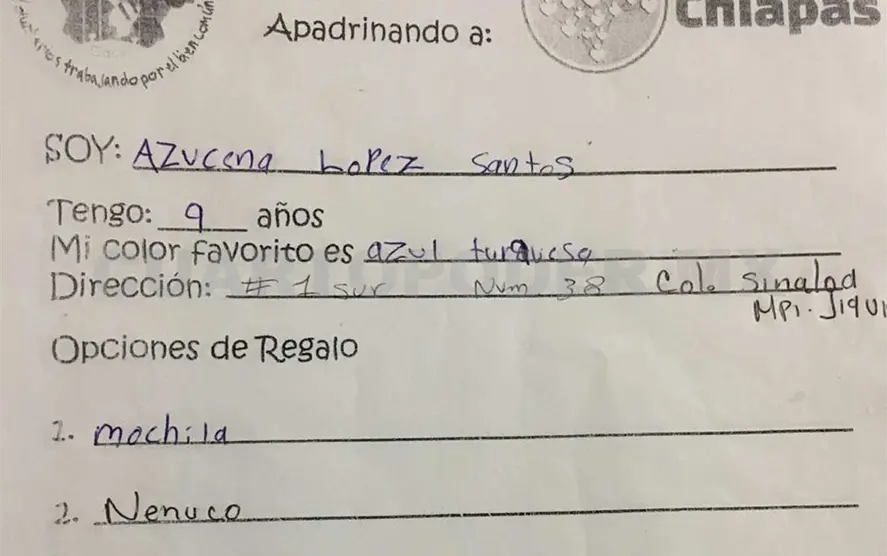 Chiapas
Apadrinando a:
trabajando por el bien común
SOY: Azucena Lopez Santos
Tengo: 9 años
Mi color favorito es azul turquesa
Dirección: # 1 sur Num 38 Col. Sinaloa
MPI. Jiqui
Opciones de Regalo
1. mochila
2. Nenuco
CUARTOPODER.MX